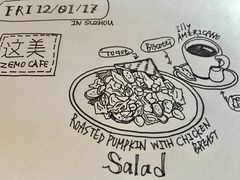 FRI 12/01/17
IN SUZHOU
这美
ZEMO CAFE
Toast
Biscotti
illy
AMERICANO
ROASTED PUMPKIN WITH CHICKEN
BREAST
Salad